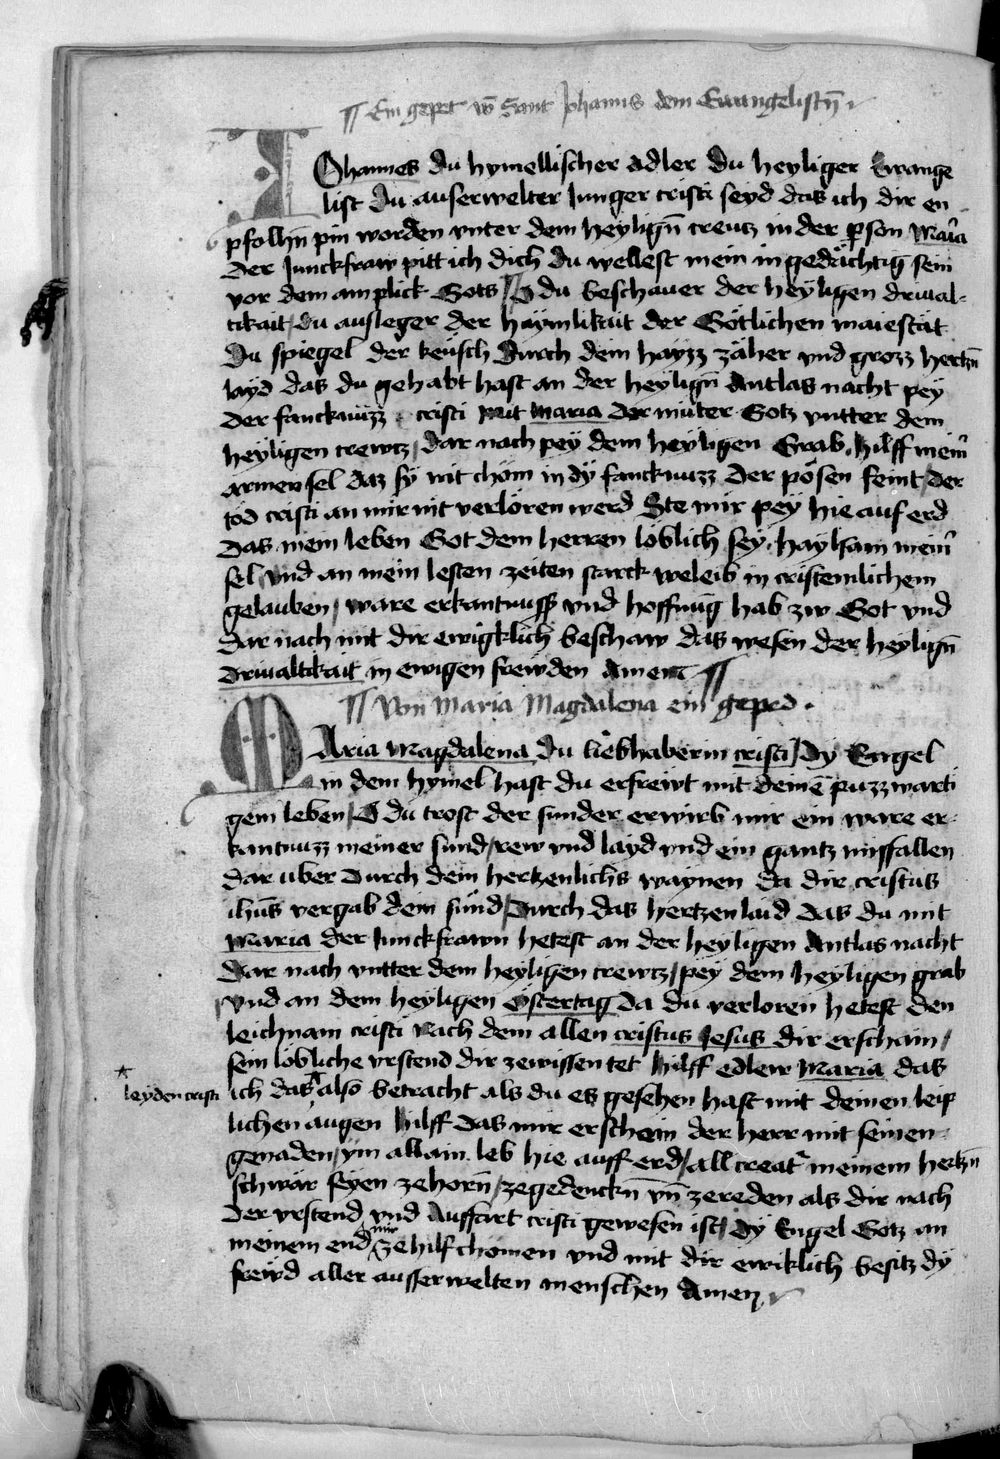 Ein gepet vō Sant Johanns dem Ewangelistñ
IOhannes du hymellischer adler du heyliger Ewange
list du auserwelter Junger cristi seyd das ich dir en
pfolhñ pin worden vnter dem heyligñ creutz in der p̱son Maria
der Junckfraw pitt ich dich du wellest mein ingedächtig sein
vor dem amplick Gots / O du beschauer der heyligen driual-
tikait / du ausleger der haymlikait der Götlichen maiestät
Du spiegel der keusch Durch dein hayzz zäher vnd grozz hertzñ
layd das du gehabt hast an der heyligñ Antlas nacht pey
der fancknuzz cristi Mit Maria der muter Gotz vntter dem
heyligen crewtz / dar nach pey dem heyligen Grab / hilff mein̄
armen sel daz sy nit chöm in dy fancknuzz der pösen feint / der
tod cristi an mir nit verloren werd Ste mir pey hie auf erd
das mein leben Got dem herren löblich sey / haylsam mein̄
sel Vnd an mein lesten zeiten starck weleib in cristenlichem
gelauben / ware erkantnuss vnd hoffnūg hab zw Got vnd
dar nach mit dir ewigklich beschaw das wesen der heyligñ
driualtikait in ewigen frewden Amen
Von Maria Magdalena ein geped .
MAria Magdalena du liebhaberin cristi / Dy Engel
in dem hymel hast du erfrewt mit deinē puzzwarti
gem leben / O du trost der sunder erwirb mir ein ware er-
kantnuzz meiner sünd / rew vnd layd vnd ein gantz missfallen
dar uber Durch dein hertzenlichs waynen da dir cristus
ihūs vergab dein sünd / Durch das hertzenlaid das du mit
Maria der Junckfrawn hetest an der heyligen Antlas nacht
Dar nach vntter dem heyligen crewtz / pey dem heyligen grab
vnd an dem heyligen Ostertag da du verloren hetest den
leichnam cristi Nach dem allen cristus Jesus dir erschain /
sein löbliche vrstend dir zewissen tet hilff edlew Maria das
* leyden cristi
ich das also betracht als du es gesehen hast mit deinen leip
lichen augen hilff das mir erschein der herr mit seinen
genaden / ym allain leb hie auff erd / all creat̄ meinem hertzñ
schwär seyen zehorñ / zegedenckñ vñ zereden als dir nach
der vrstend vnd Auffart cristi gewesen ist / Dy Engel Gotz an
meinem end mir ze hilf chömen vnd mit dir ewiklich besitz dy
frewd aller ausserwelten menschen Amen